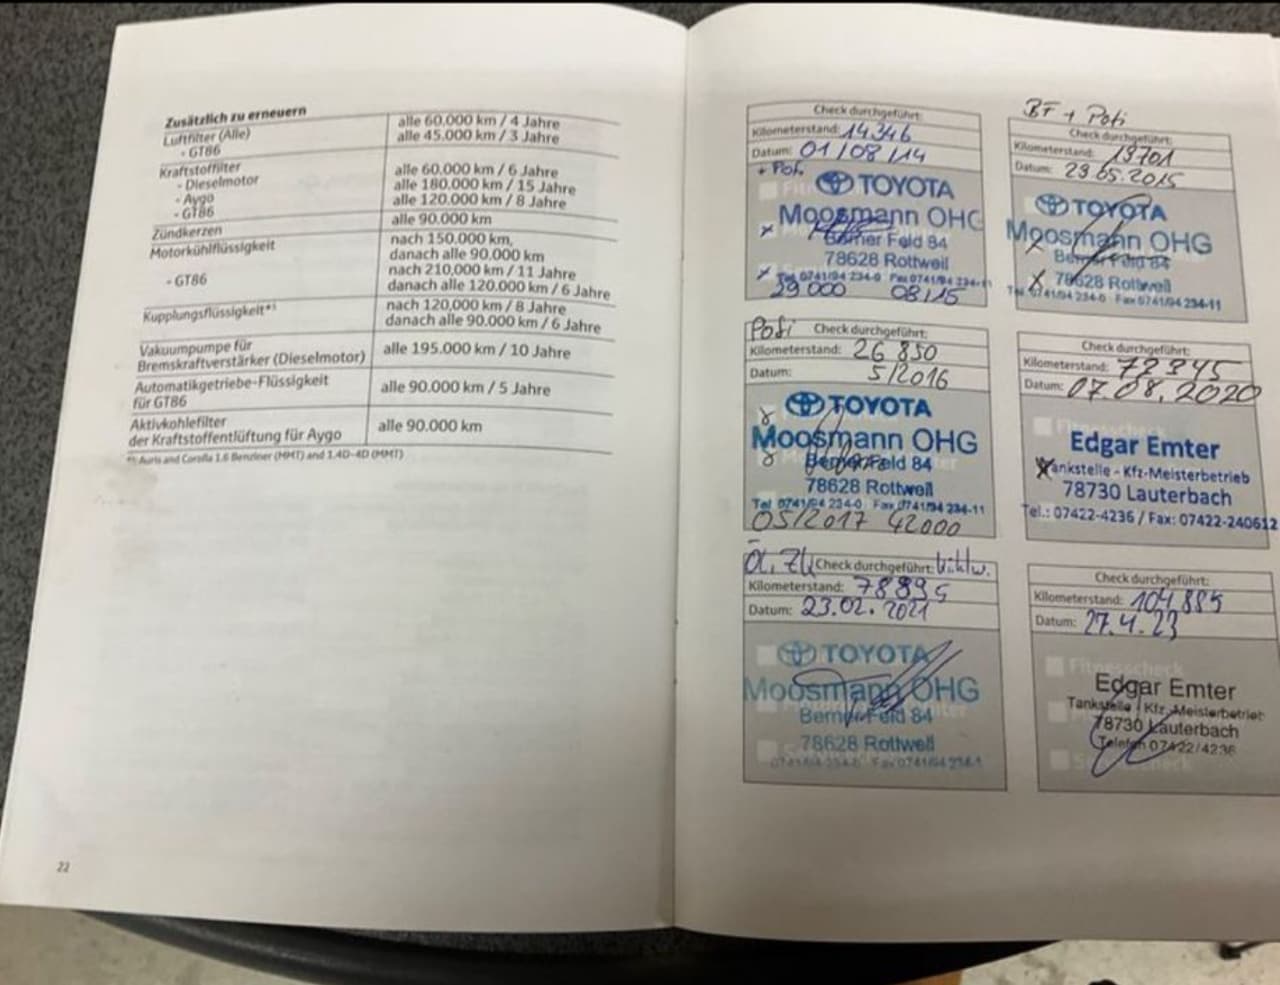 Zusätzlich zu erneuern
Luftfilter (Alle) alle 60.000 km / 4 Jahre
- GT86 alle 45.000 km / 3 Jahre
Kraftstoffilter alle 60.000 km / 6 Jahre
- Dieselmotor alle 180.000 km / 15 Jahre
- Aygo alle 120.000 km / 8 Jahre
- GT86
Zündkerzen alle 90.000 km
Motorkühlflüssigkeit nach 150.000 km,
danach alle 90.000 km
- GT86 nach 210,000 km / 11 Jahre
danach alle 120.000 km / 6 Jahre
Kupplungsflüssigkeit*¹ nach 120,000 km / 8 Jahre
danach alle 90.000 km / 6 Jahre
Vakuumpumpe für
Bremskraftverstärker (Dieselmotor) alle 195.000 km / 10 Jahre
Automatikgetriebe-Flüssigkeit
für GT86 alle 90.000 km / 5 Jahre
Aktivkohlefilter
der Kraftstoffentlüftung für Aygo alle 90.000 km
*¹ Auris und Corolla 1.6 Benziner (MMT) und 1.4D-4D (MMT)
22
Check durchgeführt:
Kilometerstand: 14346
Datum: 01/08/14
TOYOTA
Moosmann OHG
Berner Feld 84
78628 Rottweil
Tel. 0741/94 234-0 Fax 0741/94 234-11
29000 08/15
BF + Pofi
Check durchgeführt:
Kilometerstand: 19701
Datum: 29.05.2015
TOYOTA
Moosmann OHG
Berner Feld 84
78628 Rottweil
Tel. 0741/94 234-0 Fax 0741/94 234-11
Pofi Check durchgeführt:
Kilometerstand: 26 850
Datum: 5/2016
TOYOTA
Moosmann OHG
Berner Feld 84
78628 Rottweil
Tel 0741/94 234-0 Fax 0741/94 234-11
05/2017 42000
Check durchgeführt:
Kilometerstand: 72345
Datum: 07.08.2020
Edgar Emter
Tankstelle - Kfz-Meisterbetrieb
78730 Lauterbach
Tel.: 07422-4236 / Fax: 07422-240612
Check durchgeführt:
Kilometerstand: 78895
Datum: 23.02.2021
TOYOTA
Moosmann OHG
Berner Feld 84
78628 Rottweil
0741/94 234-0 Fax 0741/94 234-1
Check durchgeführt:
Kilometerstand: 104885
Datum: 27.4.23
Fitnesscheck
Edgar Emter
Tankstelle / Kfz.-Meisterbetrieb
78730 Lauterbach
Telefon 07422/4236